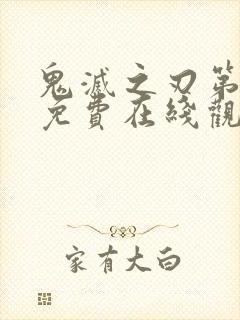 鬼滅之刃第
免費在綫觀
家有大白